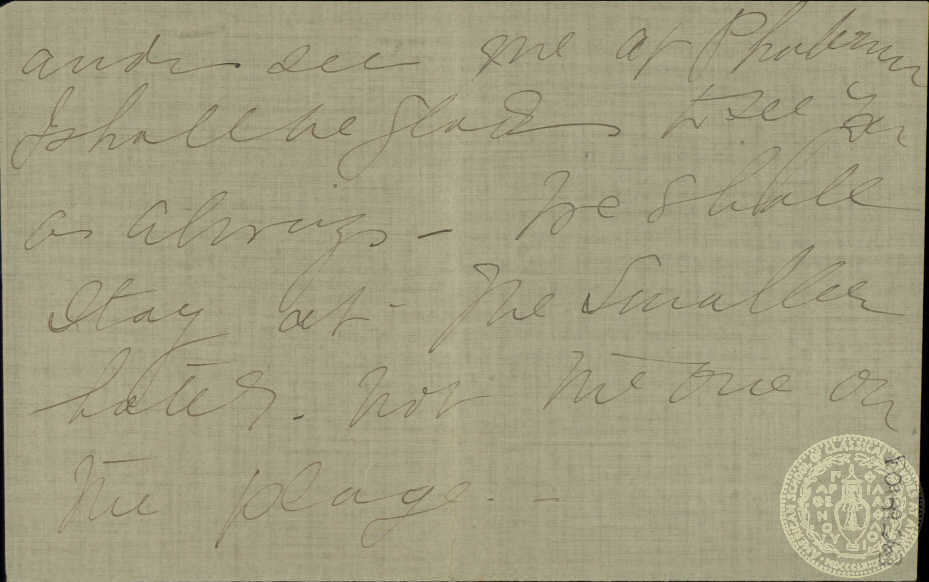 and see me at Phaleron
I shall be glad to see you
as always - We shall
stay at the smaller
hotel, not the one on
the plage. -